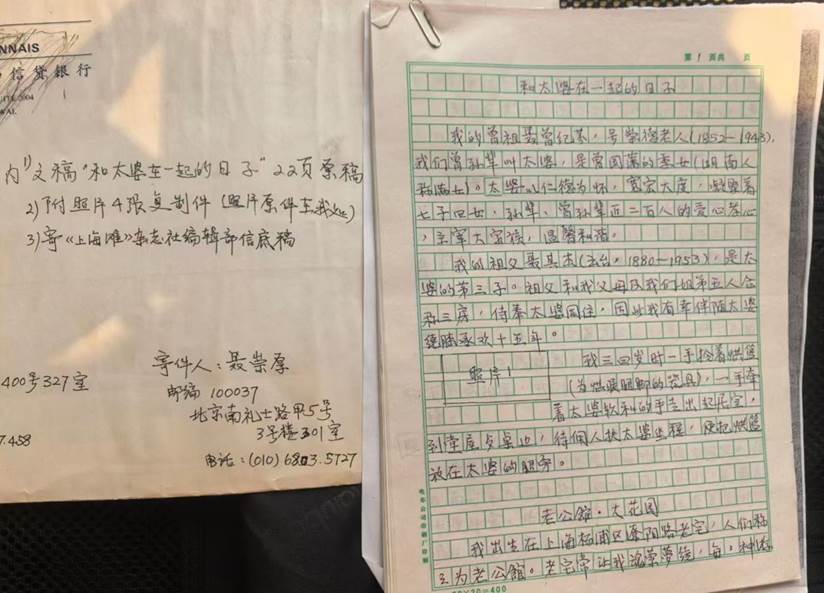 NNAIS
信贷銀行
内1)文稿"和太婆在一起的日子"22页原稿
2)附照片4张复制件(照片原件在我处)
3)寄《上海滩》杂志社编辑部信底稿
400号327室
寄件人:聂崇厚
邮编 100037
北京南礼士路甲5号
3号楼301室
7.458
电话:(010)6803.5727
第1页共 页
和太婆在一起的日子
我的曾祖聂曾纪芬,号崇德老人(1852—1943),
我们曾孙辈叫太婆,是曾国藩的季女(湖南人
称满女)。太婆以仁德为怀,宽宏大度,凝聚着
七子四女,孙辈、曾孙辈近二百人的爱心孝心
,主宰大家族,温馨和谐。
我的祖父聂其杰(云台,1880—1953),是太
婆的第三子。祖父和我父母及我们姐弟五人合
称三房,侍奉太婆同住,因此我有幸伴随太婆
绕膝承欢十五年。
照片1
我三四岁时一手拎着烘篮
(为烘暖腿脚的瓷具),一手牵
着太婆软和的手走出起居室,
到堂屋桌边,待佣人扶太婆坐稳,便把烘篮
放在太婆的脚旁。
老公館·大花园
我出生在上海杨浦区辽阳路老宅,人们称
之为老公館。老宅常让我魂萦梦绕,每
20×20=400